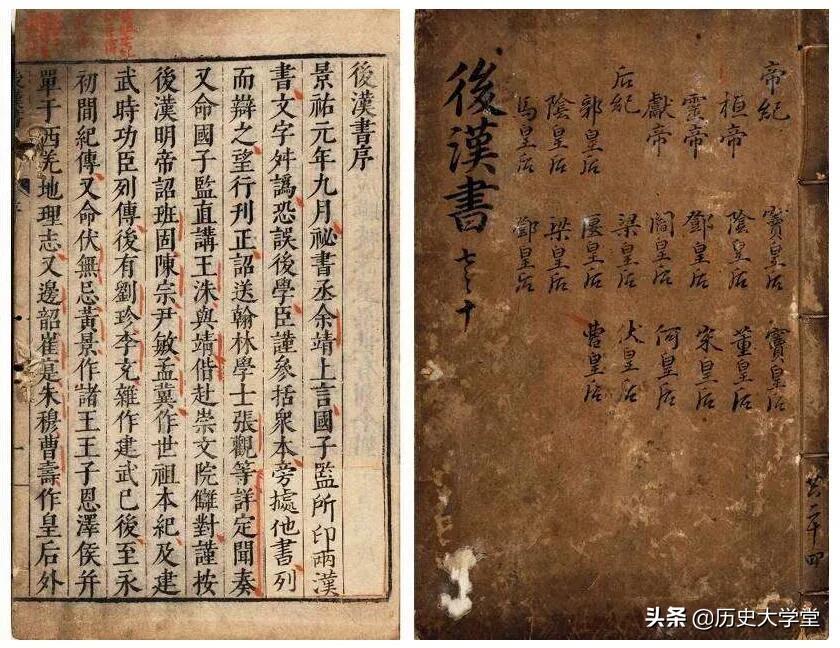 後漢書序
景祐元年九月祕書丞余靖上言國子監所印兩漢
書文字舛譌恐誤後學臣謹參括衆本旁據他書列
而辯之望行刊正詔送翰林學士張觀等詳定聞奏
又命國子監直講王洙與靖偕赴崇文院讎對謹按
後漢明帝詔班固陳宗尹敏孟冀作世祖本紀及建
武時功臣列傳後有劉珍李充雜作建武已後至永
初間紀傳又命伏無忌黃景作諸王王子恩澤侯并
單于西羌地理志又邊韶崔寔朱穆曹壽作皇后外
帝紀
桓帝
靈帝
獻帝
后紀
郭皇后
陰皇后
馬皇后
竇皇后
陰皇后
鄧皇后
閻皇后
梁皇后
匽皇后
梁皇后
鄧皇后
竇皇后
董皇后
宋皇后
何皇后
伏皇后
曹皇后
後漢書
七之十
共二十四
头条 @历史大学堂